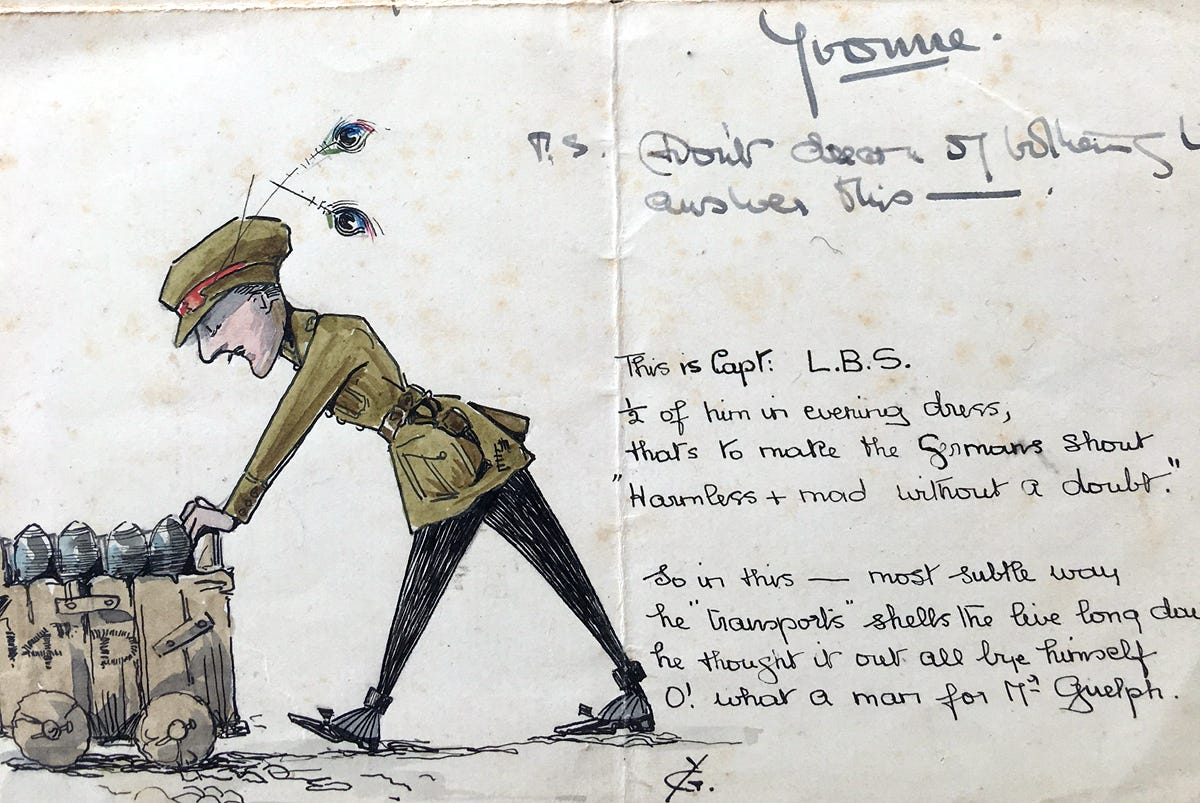 Yvonne.
P.S. Don't dream of bothering
answer this — .
This is Capt: L.B.S.
½ of him in evening dress,
thats to make the Germans shout
"Harmless + mad without a doubt."
So in this — most subtle way
he "transports" shells the live long day
he thought it out all bye himself
O! what a man for Mr Guelph.
YG.